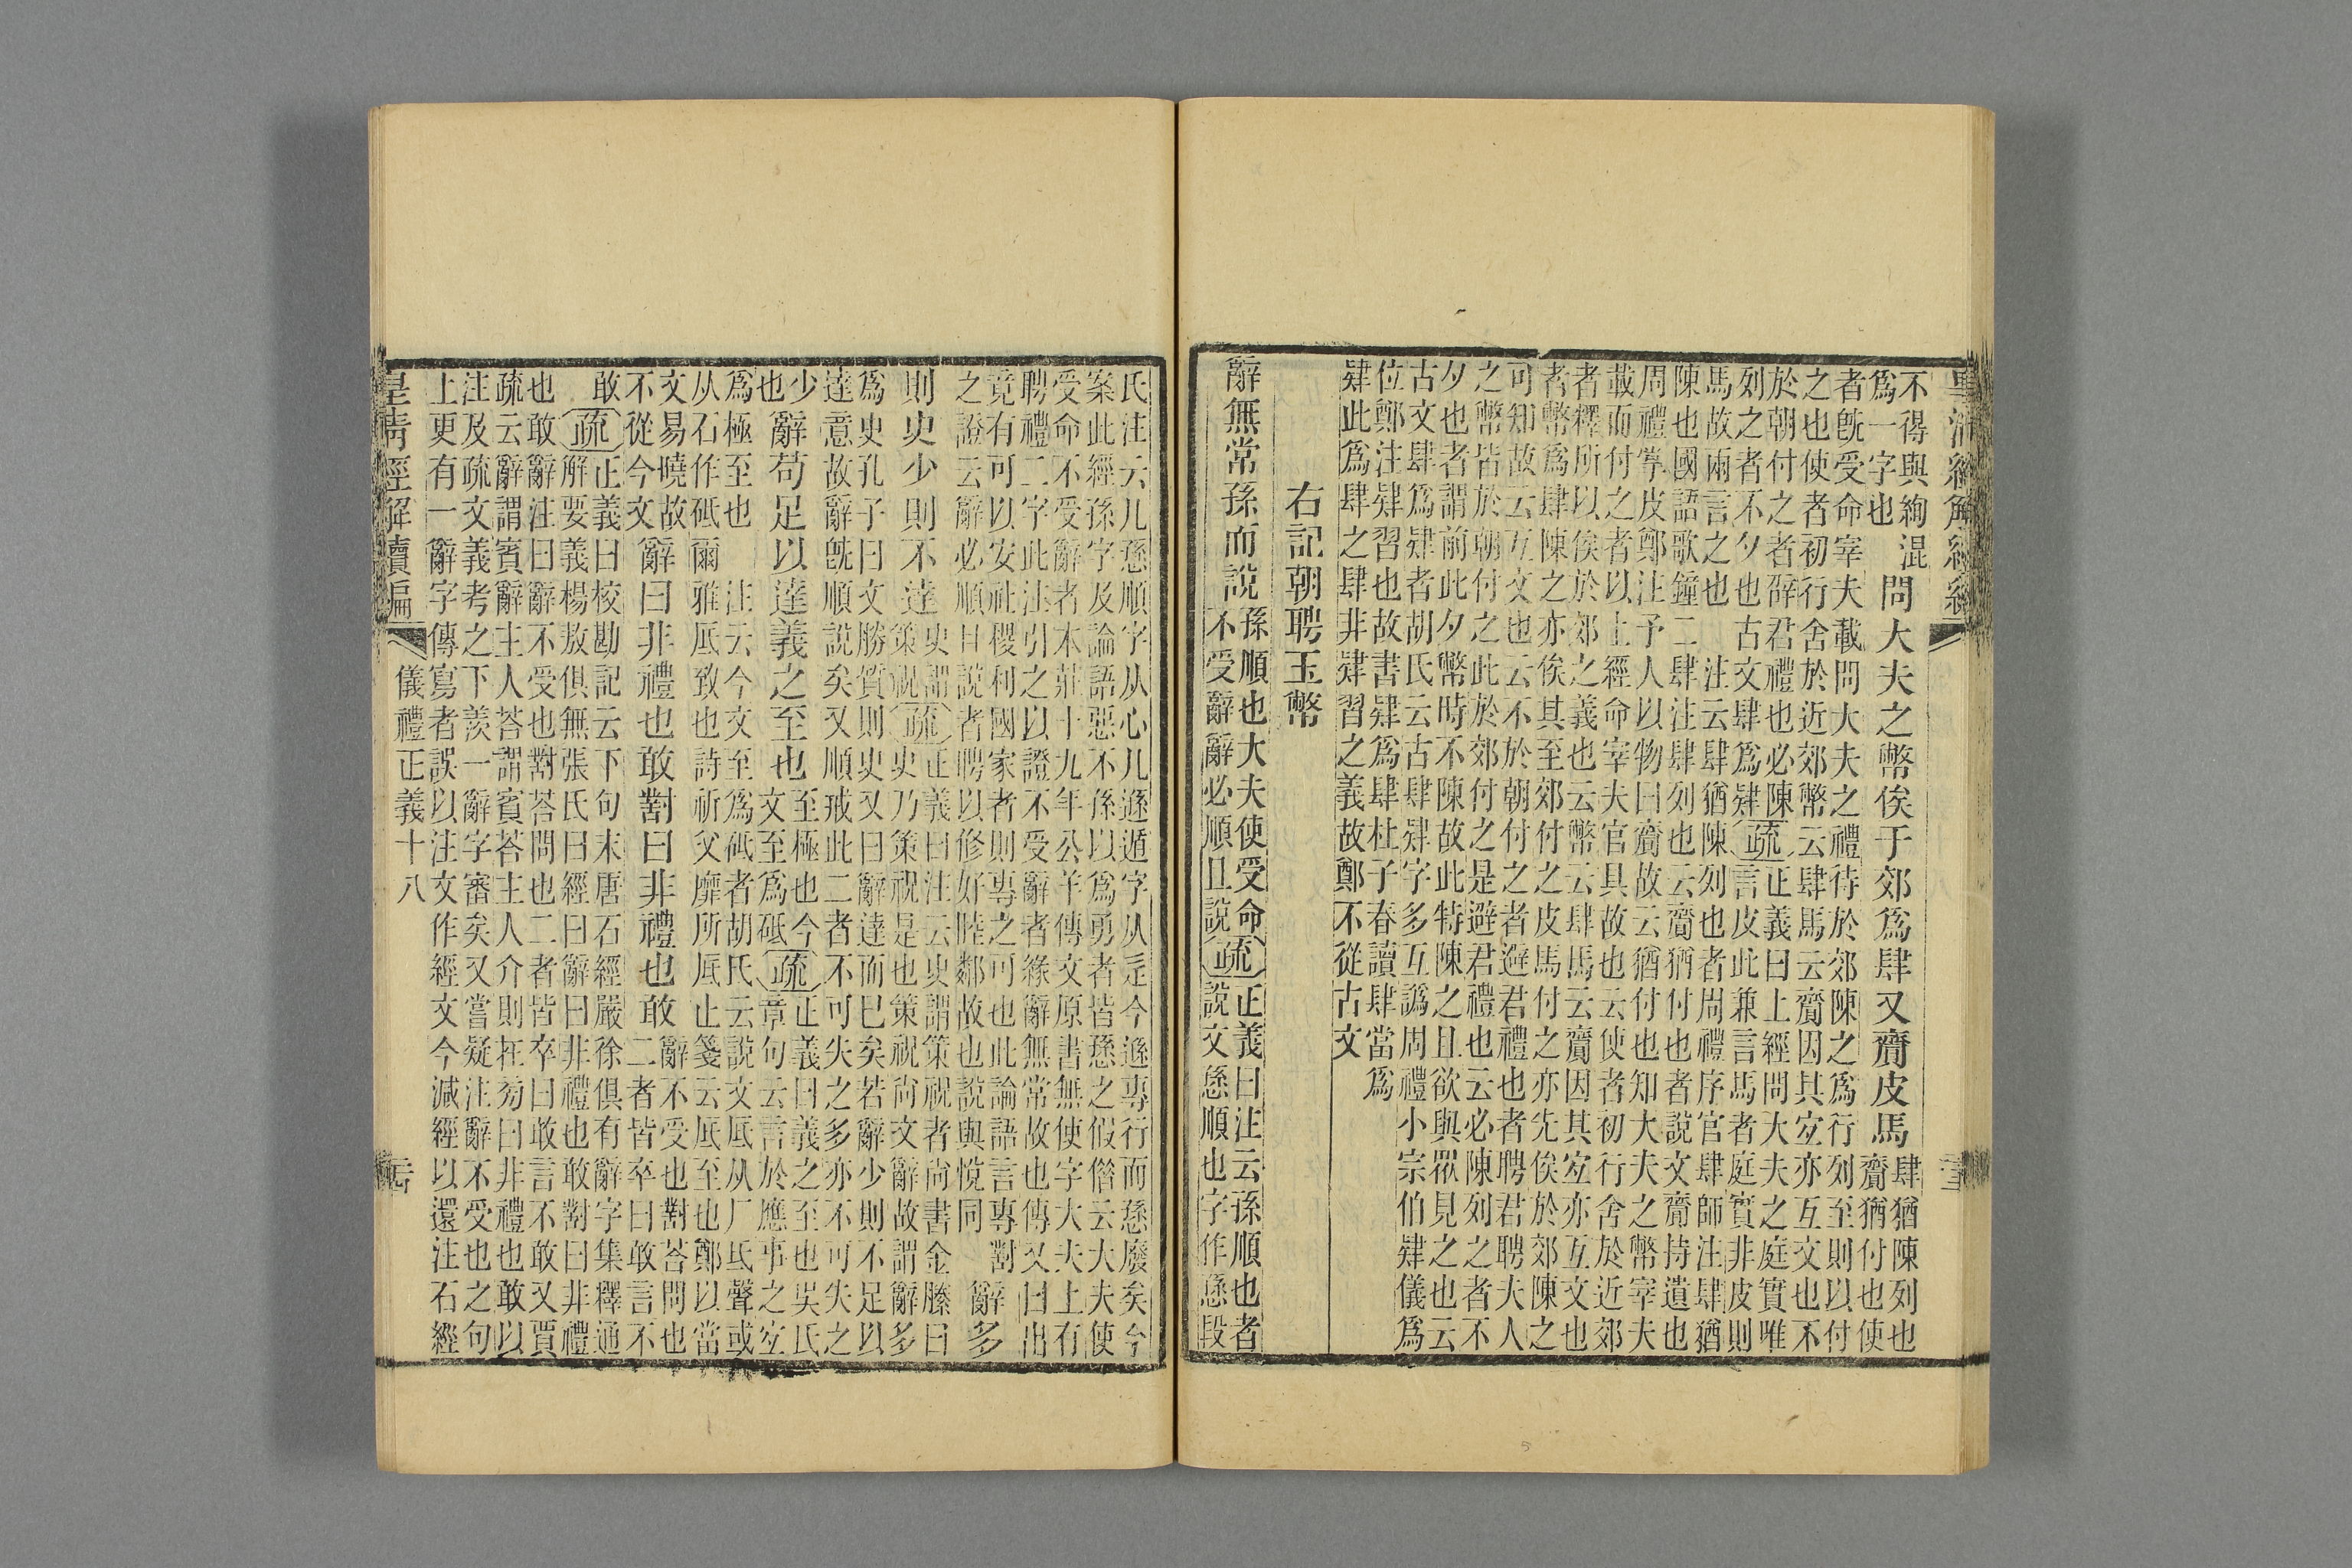 皇清經解續編
不得與絢混
爲一字也
問大夫之幣俟于郊爲肆又齎皮馬
肆猶陳列也
齎猶付也使
者旣受命宰夫載問大夫之禮待於郊陳之爲行列至則以付
之也使者初行舍於近郊幣云肆馬云齎因其宜亦互文也不
於朝付之者辟君禮也必陳
列之者不夕也古文肆爲肄
疏
正義曰上經問大夫之庭實唯
言皮此兼言馬者庭實非皮則
馬故兩言之也 注云肆猶陳列也者周禮序官肆師注肆猶
陳也國語歌鐘二肆注肆列也云齎猶付也者說文齎持遺也
周禮掌皮鄭注予人以物曰齎故云猶付也知大夫之幣宰夫
載而付之者以上經命宰夫官具故也云使者初行舍於近郊
者釋所以俟於郊之義也云幣云肆馬云齎因其宜亦互文也
者幣爲肆陳之亦俟其至郊付之皮馬付之亦先俟於郊陳之
可知故云互文也云不於朝付之者避君禮也者聘君聘夫人
之幣皆於朝付之此於郊付之是避君禮也云必陳列之者不
夕也者謂前此夕幣時不陳故此特陳之且欲與眾見之也云
古文肆爲肄者胡氏云古肆肄字多互譌周禮小宗伯肄儀爲
位鄭注肄習也故書肄爲肆杜子春讀肆當爲
肄此爲肆之肆非肄習之義故鄭不從古文
右記朝聘玉幣
辭無常孫而說
孫順也大夫使受命
不受辭辭必順且說
疏
正義曰注云孫順也者
說文愻順也字作愻段
氏注云凡愻順字从心凡遜遁字从辵今遜專行而愻廢矣今
案此經孫字及論語惡不孫以爲勇者皆愻之假僣云大夫使
受命不受辭者本莊十九年公羊傳文原書無使字大夫上有
聘禮二字此注引之以證不受辭者緣辭無常故也傳又曰出
竟有可以安社稷利國家者則專之可也此論語言專對
之證云辭必順且說者聘以修好睦鄰故也說與悅同
辭多
則史少則不達
史謂
策祝
疏
正義曰注云史謂策祝者尚書金縢曰
史乃策祝是也策祝尚文辭故謂辭多
爲史孔子曰文勝質則史又曰辭達而已矣若辭少則不足以
達意故辭旣順說矣又順戒此二者不可失之多亦不可失之
少
也
辭苟足以達義之至也
至極也今
文至爲砥
疏
正義曰義之至也吳氏
章句云言於應事之宜
爲極至也 注云今文至爲砥者胡氏云說文底从厂氐聲或
从石作砥爾雅底致也詩祈父靡所底止箋云底至也鄭以當
文易曉故
不從今文
辭曰非禮也敢對曰非禮也敢
辭不受也對荅問也
二者皆卒曰敢言不
敢
疏
正義曰校勘記云下句末唐石經嚴徐俱有辭字集釋通
解要義楊敖俱無張氏曰經曰辭曰非禮也敢對曰非禮
也敢辭注曰辭不受也對荅問也二者皆卒曰敢言不敢又賈
疏云辭謂賓辭主人荅謂賓荅主人介則在旁曰非禮也敢以
注及疏文義考之下羨一辭字審矣又嘗疑注辭不受也之句
上更有一辭字傳寫者誤以注文作經文今減經以還注石經
皇清經解續編
儀禮正義十八